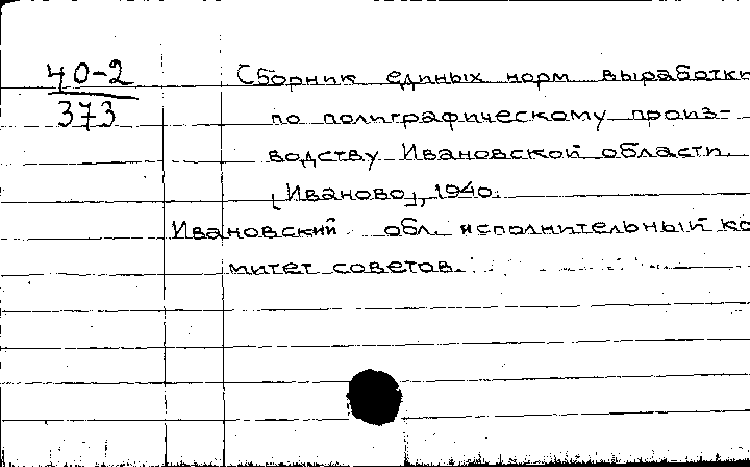 40-2
373
Сборник единых норм выработки
по полиграфическому произ-
водству Ивановской области.
[Иваново], 1940.
Ивановский обл. исполнительный ко
митет советов.